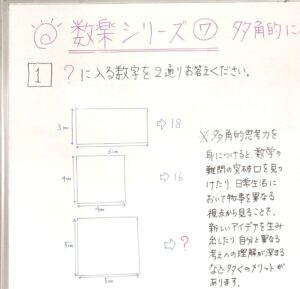 数楽シリーズ⑦ 多角的に
1 ?に入る数字を2通りお答えください。
3cm
⇨18
6cm
4cm
⇨16
4cm
5cm
⇨?
5cm
※多角的思考力を
身につけると、数学の
難問の突破口を見つ
けたり、日常生活に
おいて物事を異なる
視点から見ることで、
新しいアイデアを生み
出したり、自分と異なる
考えへの理解が深まる
など多くのメリットが
あります。